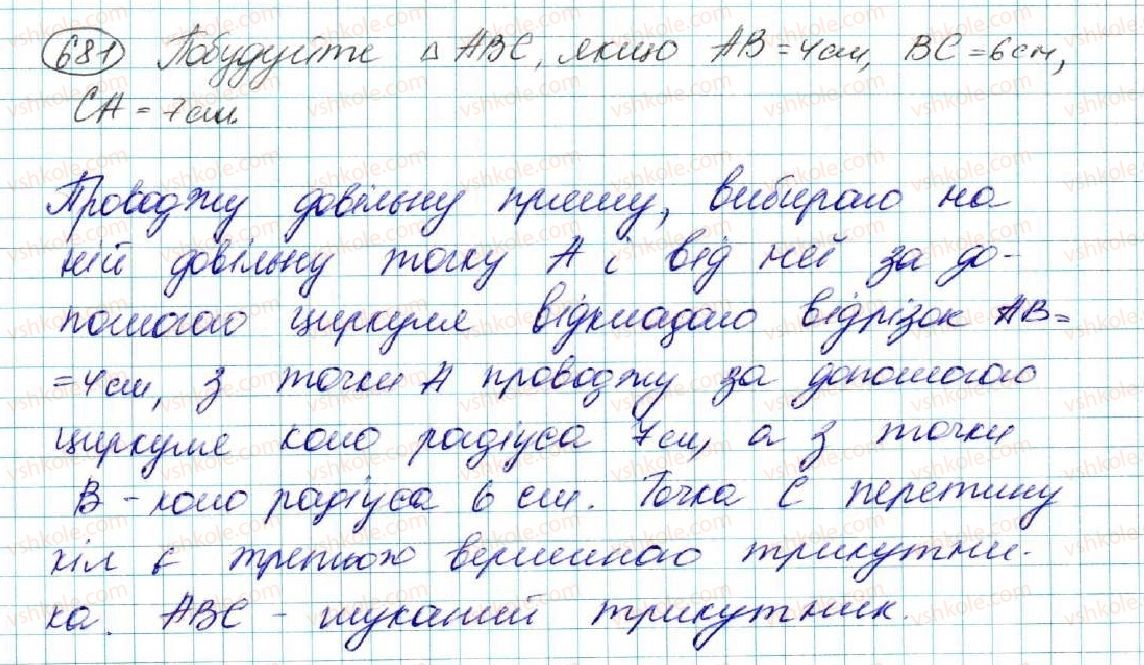 681 Побудуйте △ ABC, якщо AB = 4 см, BC = 6 см,
CA = 7 см.
Проводжу довільну пряму, вибираю на
ній довільну точку A і від неї за до-
помогаю циркуля відкладаю відрізок AB=
=4см, з точки A проводжу за допомогаю
циркуля коло радіуса 7см, а з точки
B - коло радіуса 6 см. Точка C перетину
кіл є третьою вершиною трикутни-
ка. ABC - шуканий трикутник.